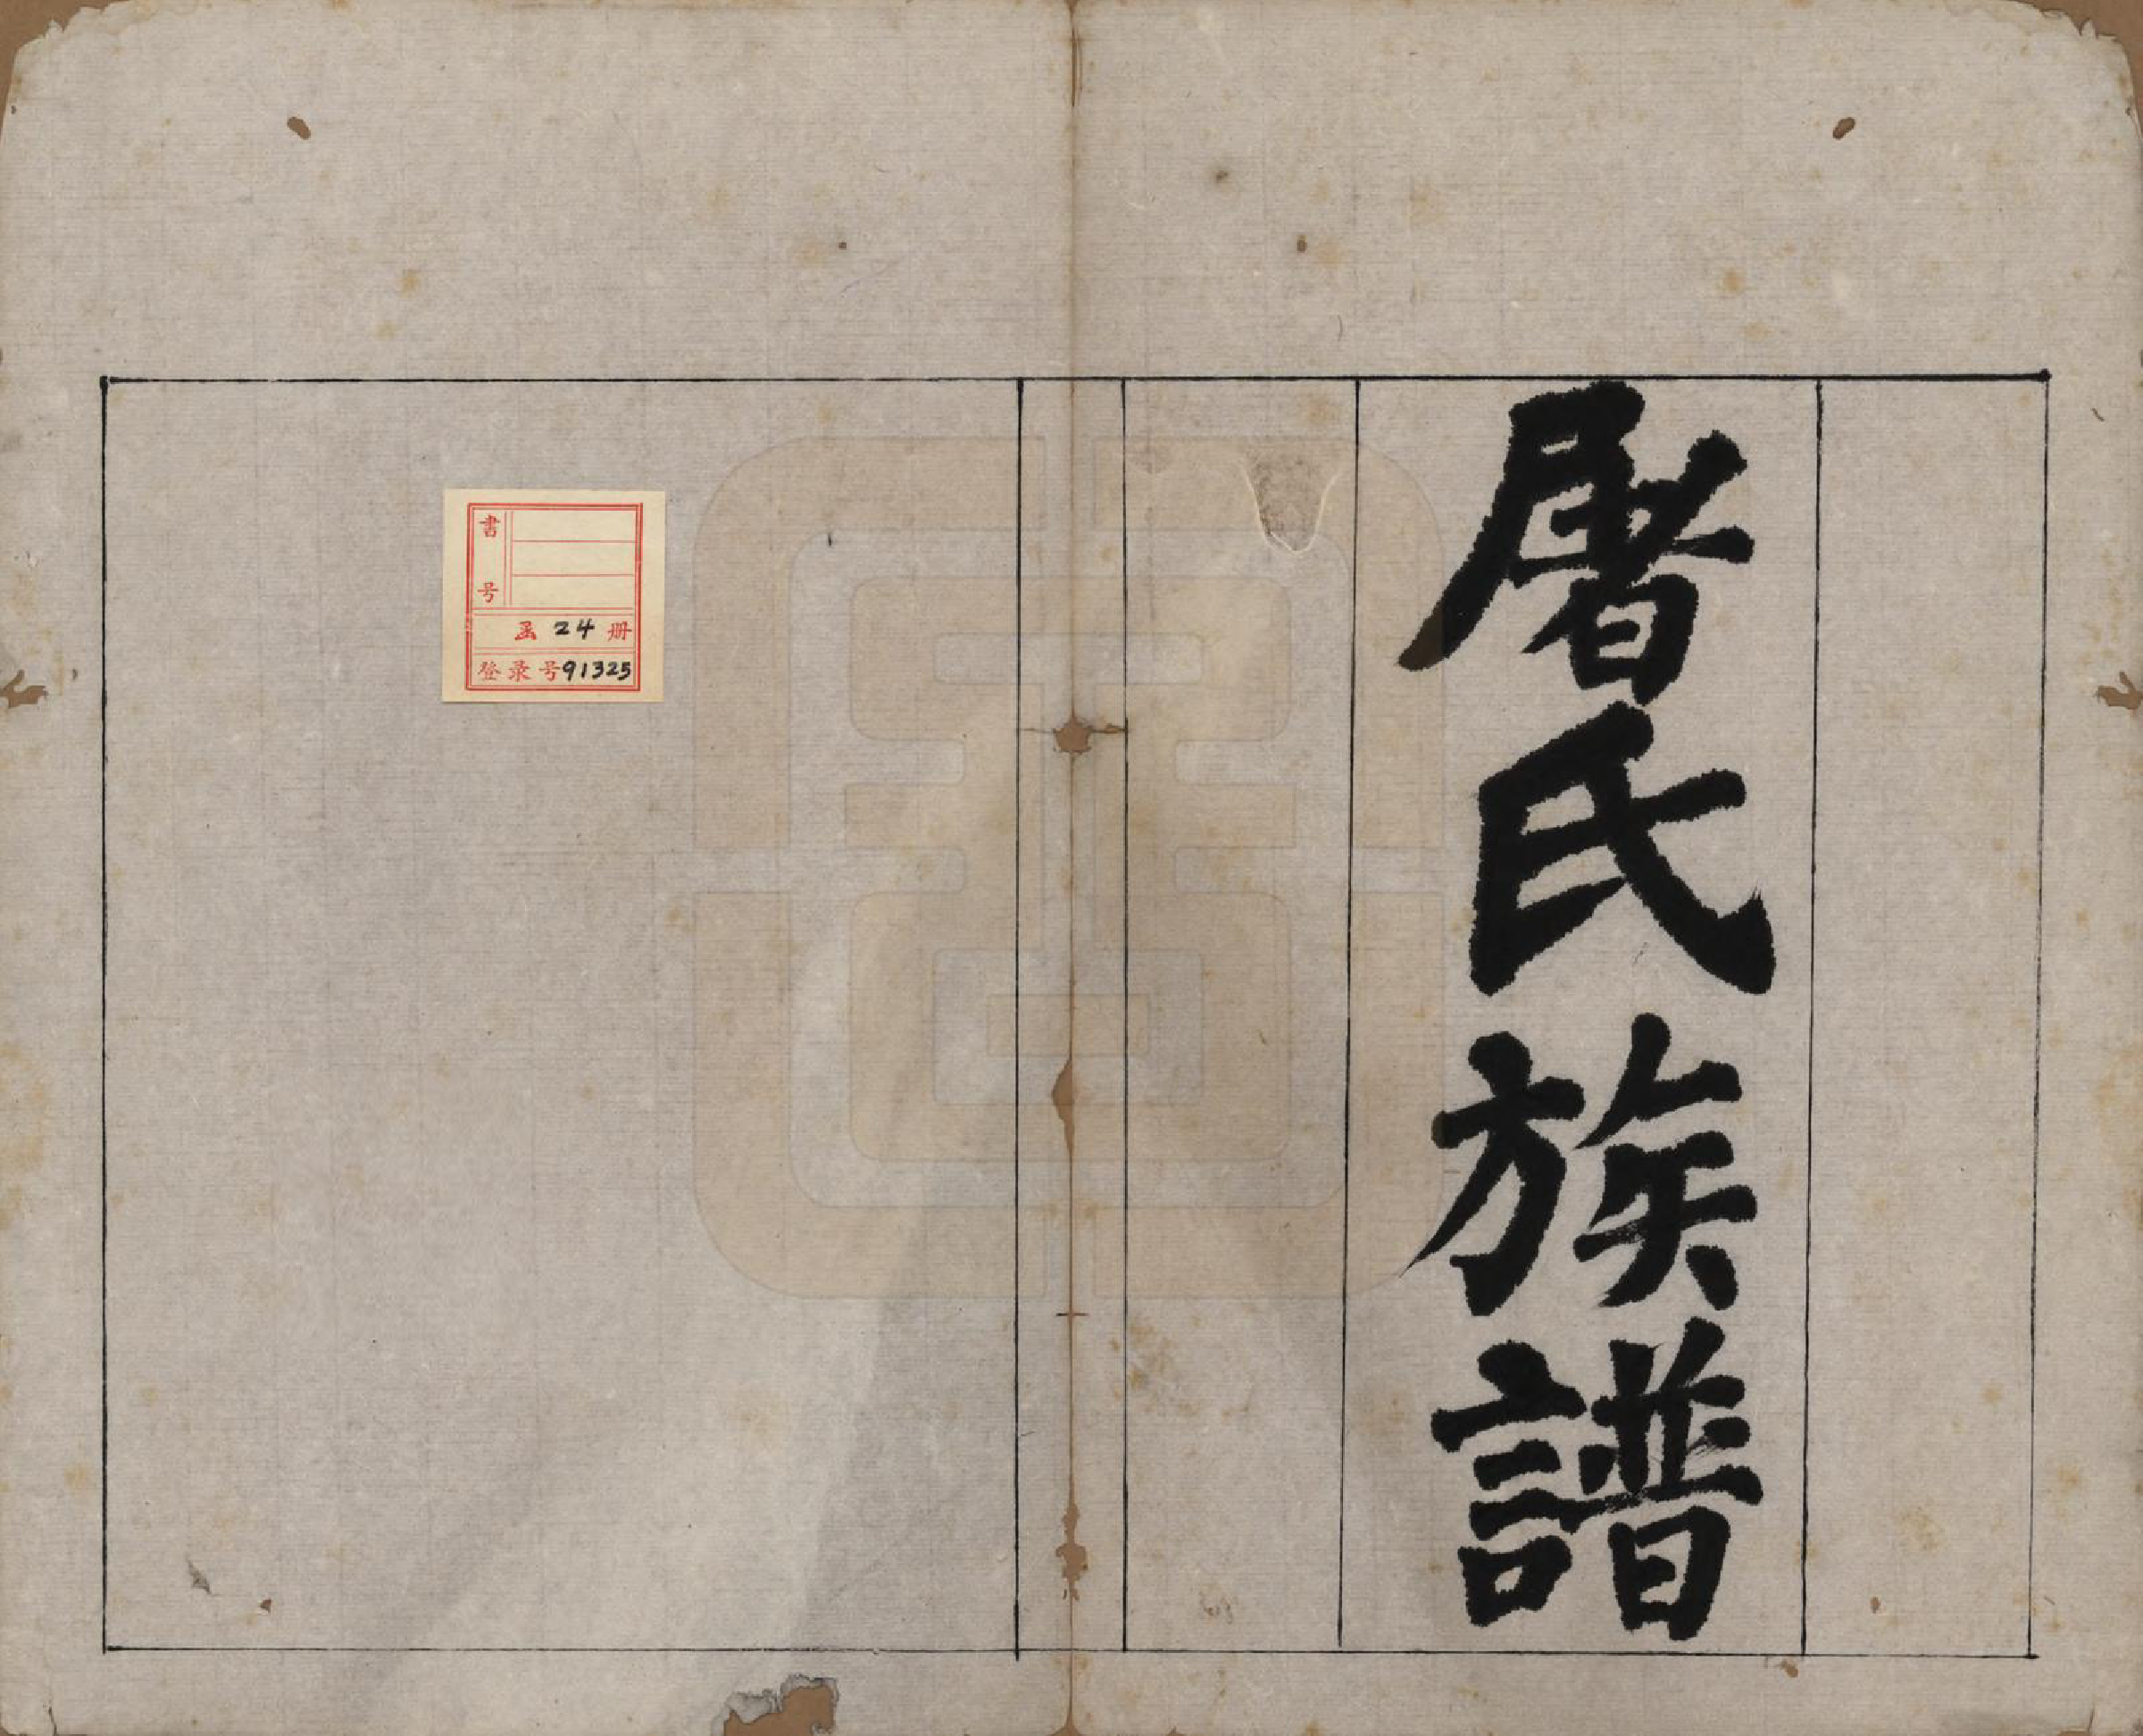 屠氏族譜
書号
函 24 册
登录号91325